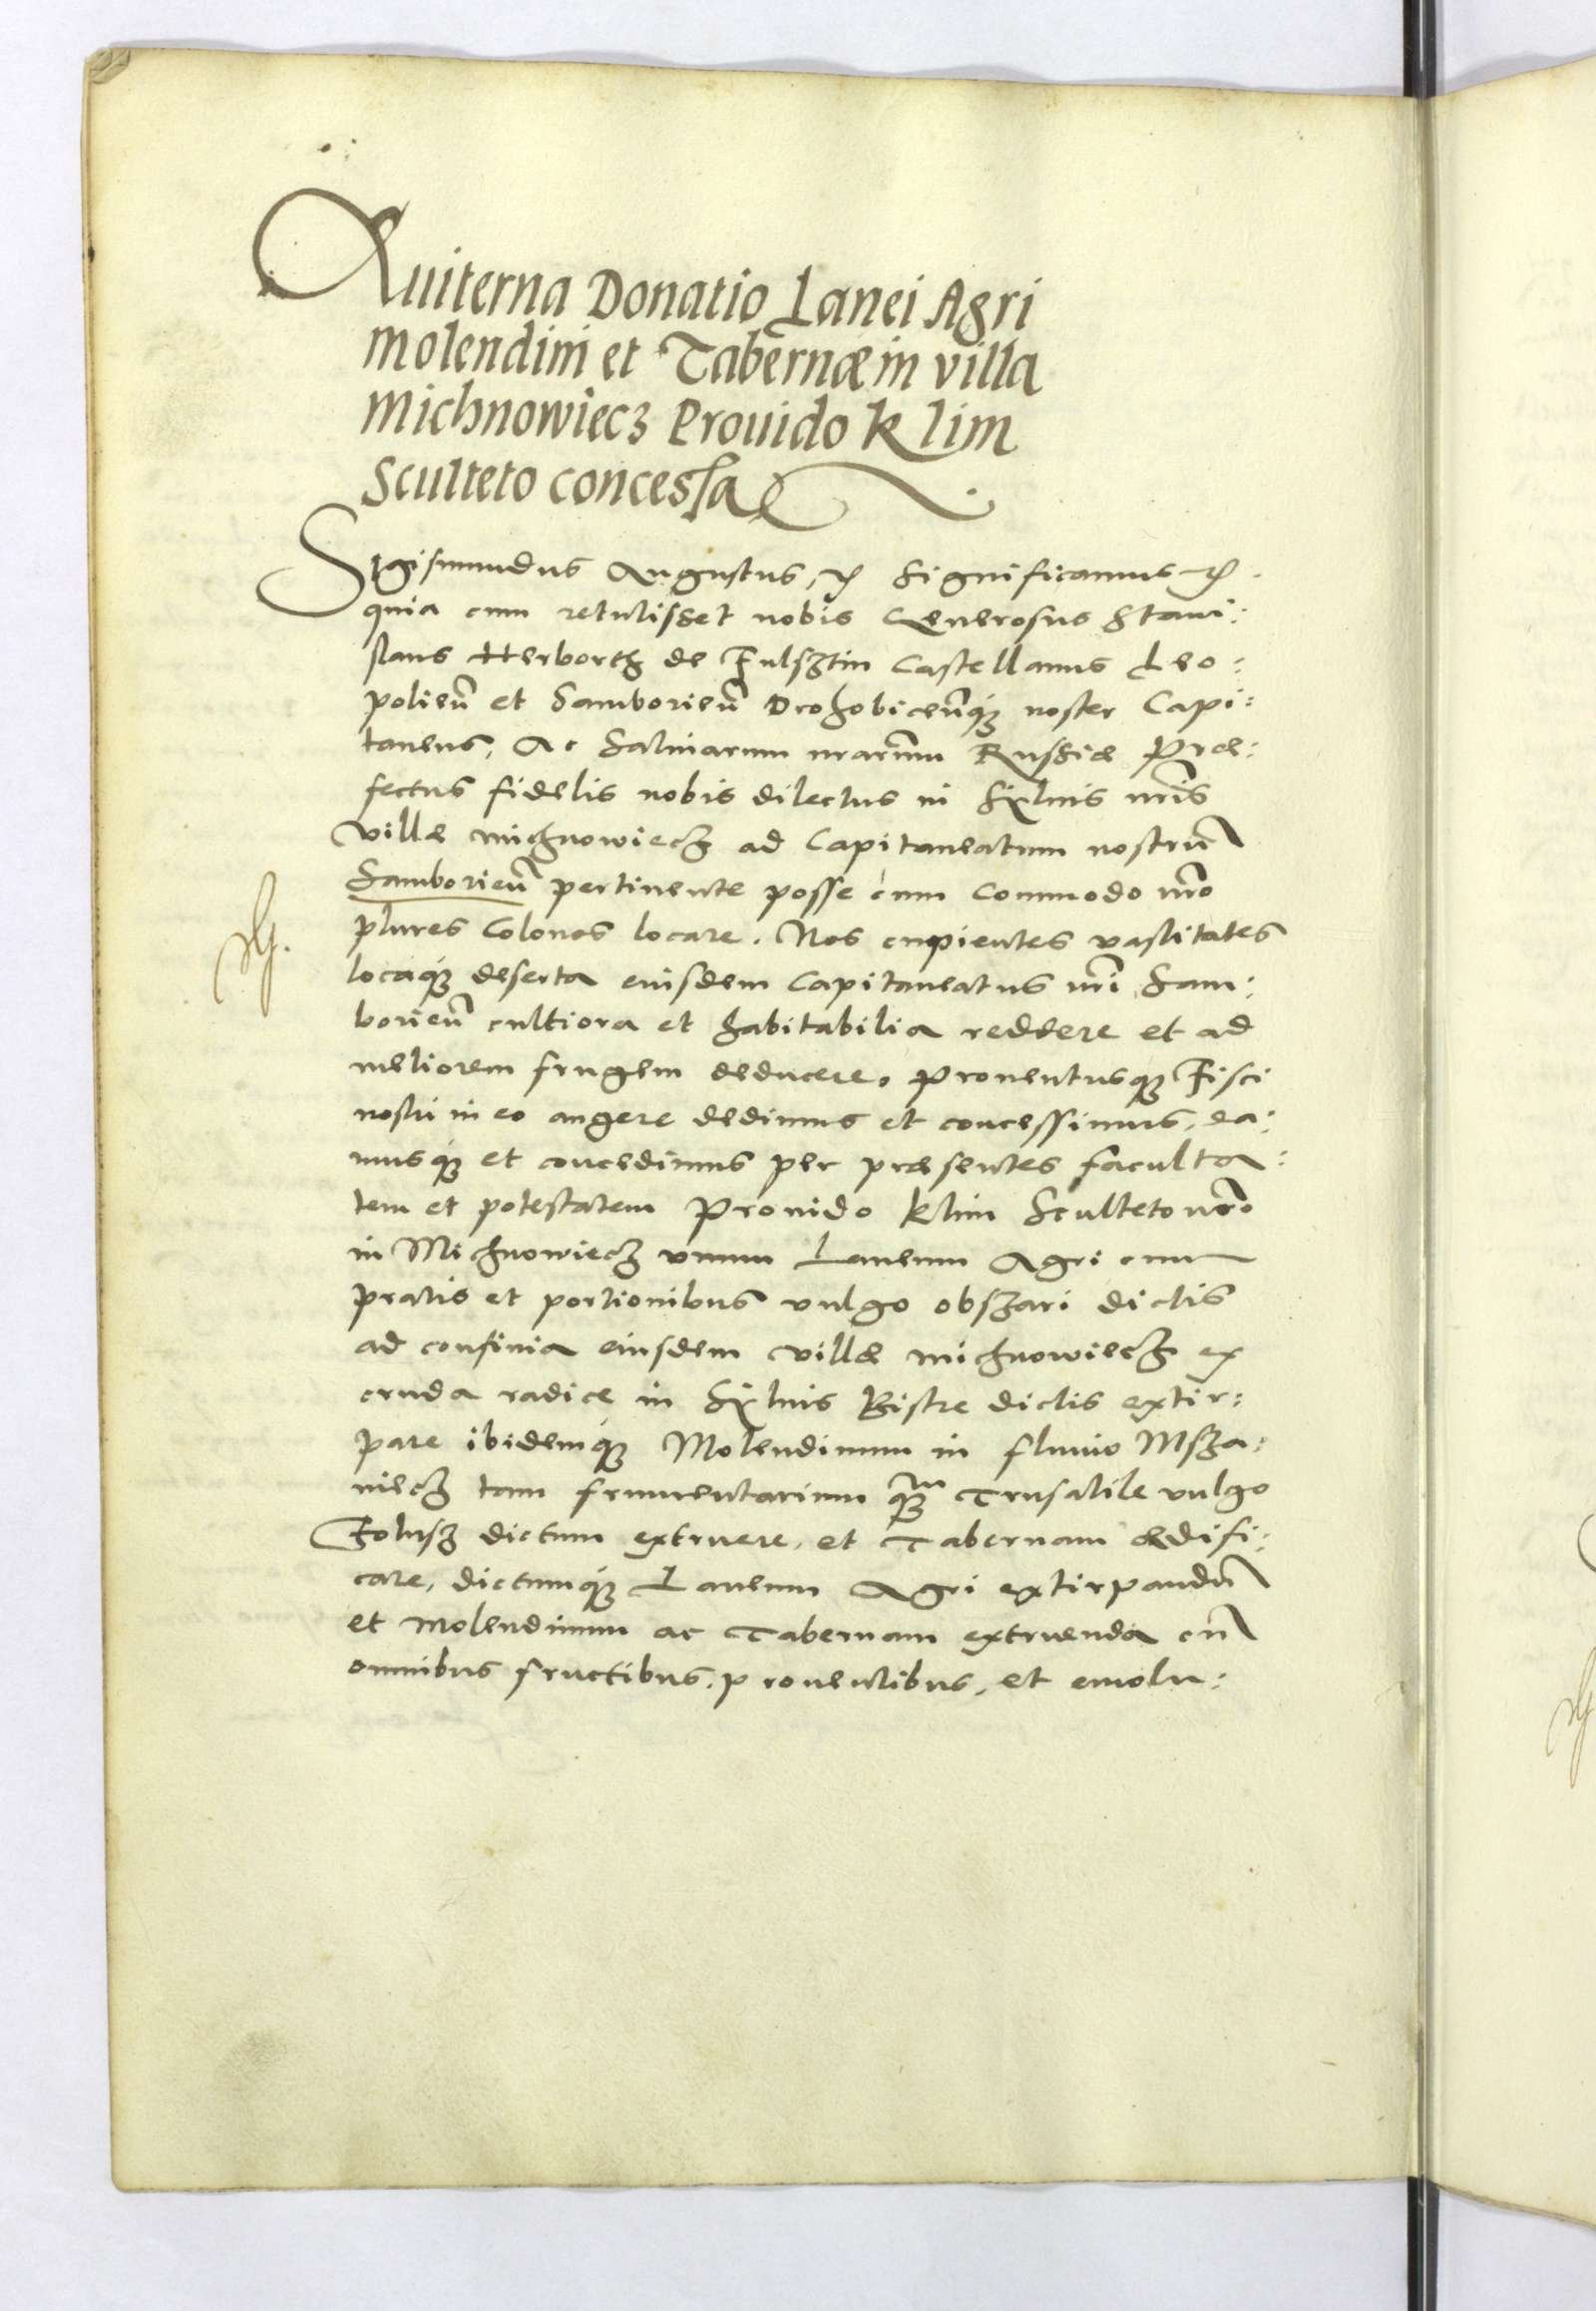 Auiterna Donatio Lanei Agri
Molendini et Tabernæ in villa
Michnowiecz Prouido Klim
Sculteto concessa
Sigismundus Augustus, etc Significamus etc.
quia cum retulisset nobis Generosus Stani:
slaus Herborth de Fulsztin Castellanus Leo:
polieñ et Samborieñ Drohobiceñq; noster Capi:
taneus, Ac Salinarum nrarum Russiæ Præ:
fectus fidelis nobis dilectus in Syluis nris
villæ michnowiecz ad Capitaneatum nostrũ
Samborieñ pertinente posse cum Commodo nro
plures Colonos locare. Nos cupientes vastitates
locaq; deserta eiusdem Capitaneatus nri Sam:
borieñ cultiora et habitabilia reddere et ad
meliorem frugem deducere, Prouentusq; Fisci
nostri in eo augere dedimus et concessimus, da:
musq; et concedimus per præsentes faculta:
tem et potestatem Prouido Klim Sculteto nro
in Michnowiecz vnum Laneum Agri cum
pratis et portionibus vulgo obszari dictis
ad confinia eiusdem villæ michnowiecz ex
cruda radice in Syluis Bistre dictis extir:
pare ibidemq; Molendinum in fluuio Msza:
niecz tam frumentarium q̃m Trusatile vulgo
Folusz dictum extruere, et Tabernam ædifi:
care, dictumq; Laneum Agri extirpandũ
et Molendinum ac Tabernam extruenda cũ
omnibus fructibus, prouentibus, et emolu: